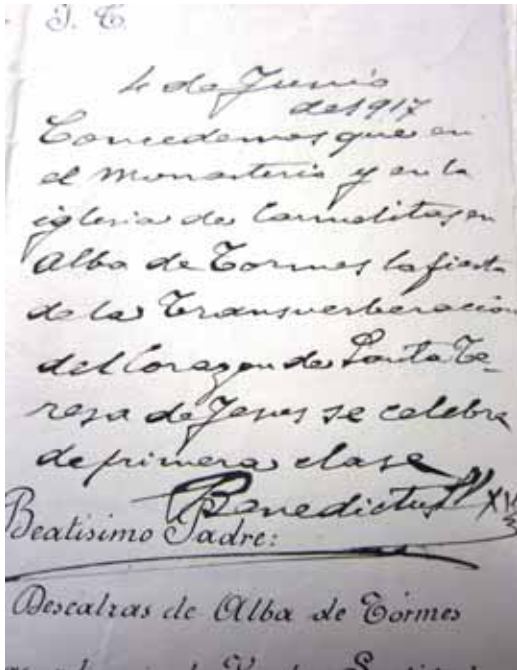 J. T.
4 de Junio
de 1917
Concedemos que en
el Monasterio y en la
iglesia de Carmelitas en
Alba de Tormes la fiesta
de la Transverberación
del Corazon de Santa Te-
resa de Jesus se celebre
de primera clase
Benedictus PP XV
Beatisimo Padre:
Descalzas de Alba de Tórmes